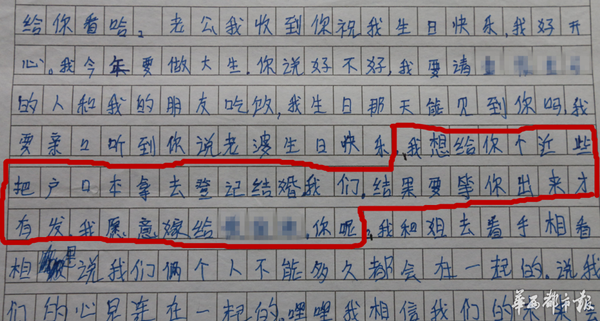 给你看哈。老公我收到你祝我生日快乐,我好开
心。我今年要做大生,你说好不好,我要请
的人和我的朋友吃饮,我生日那天能见到你吗,我
要亲口听到你说老婆生日快乐,我想给你个近些
把户口本拿去登记结婚,我们,结果要等你出来才
有发,我愿意嫁给 ,你呢。我和姐去看手相看
相 说我们俩个人不能多久都会在一起的,说我
们的心是连在一起的,哩哩我相信我们的
华西都市报